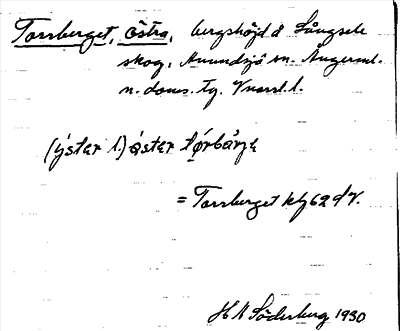 Torrberget, östra, bergshöjd å Långsele
skog, Anundsjö sn. Ångerml.
n. doms. tg. Vnorrl. l.
(ýster l.) áster tǿrbærje
= Torrberget kbl 62 d V.
H N Söderberg 1930